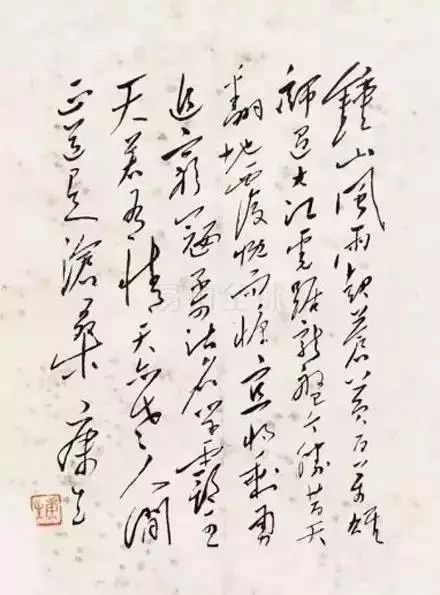 鐘山風雨起蒼黃百萬雄
師過大江虎踞龍盤今勝昔天
翻地覆慨而慷宜將剩勇
追窮寇不可沽名學霸王
天若有情天亦老人間
正道是滄桑 康生
康生
易拍全球